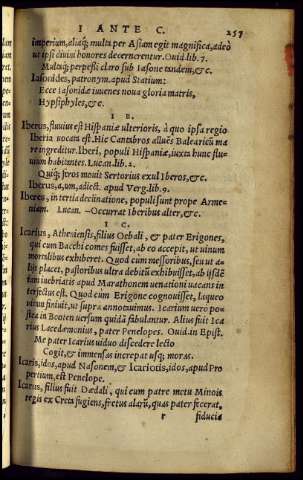 I ANTE C. 257
imperium, aliaq; multa per Asiam egit magnifica, adeò
ut ipsi diuini honores decernerentur. Ouid. lib. 7.
Multaq; perpessi claro sub Iasone tandem, &c.
Iasonides, patronym. apud Statium:
Ecce Iasonidæ iuuenes noua gloria matris,
Hypsiphyles, &c.
I B.
Iberus, fluuius est Hispaniæ ulterioris, à quo ipsa regio
Iberia uocata est. Hic Cantabros alluēs Balearicū ma
re ingreditur. Iberi, populi Hispaniæ, iuxta hunc flu-
uium habitantes. Lucan. lib. 2.
Quiq; feros mouit Sertorius exul Iberos, &c.
Iberus, a, um, adiect. apud Verg. lib. 9.
Iberes, in tertia declinatione, populi sunt prope Arme-
niam. Lucan. -Occurrat Iberibus alter, &c.
I C.
Icarius, Atheniensis, filius Oebali, & pater Erigones,
qui cum Bacchi comes fuisset, ab eo accepit, ut uinum
mortalibus exhiberet. Quod cum messoribus, seu ut a-
lijs placet, pastoribus ultra debitū exhibuisset, ab ijsdē
tam inebriatis apud Marathonem uenationi uacans in
terfectus est. Quod cum Erigone cognouisset, laqueo
uitam finiuit, ut supra annotauimus. Icarium uero po-
stea in Booten uersum quidā fabulantur. Alius fuit Ica
rius Lacedæmonius, pater Penelopes. Ouid. in Epist.
Me pater Icarius uiduo discedere lecto
Cogit, & immensas increpat usq; moras.
Icaris, idos, apud Nasonem, & Icariotis, idos, apud Pro
pertium, est Penelope.
Icarus, filius fuit Dædali, qui cum patre metu Minois
regis ex Creta fugiens, fretus alarū, quas pater fecerat,
r fiducia